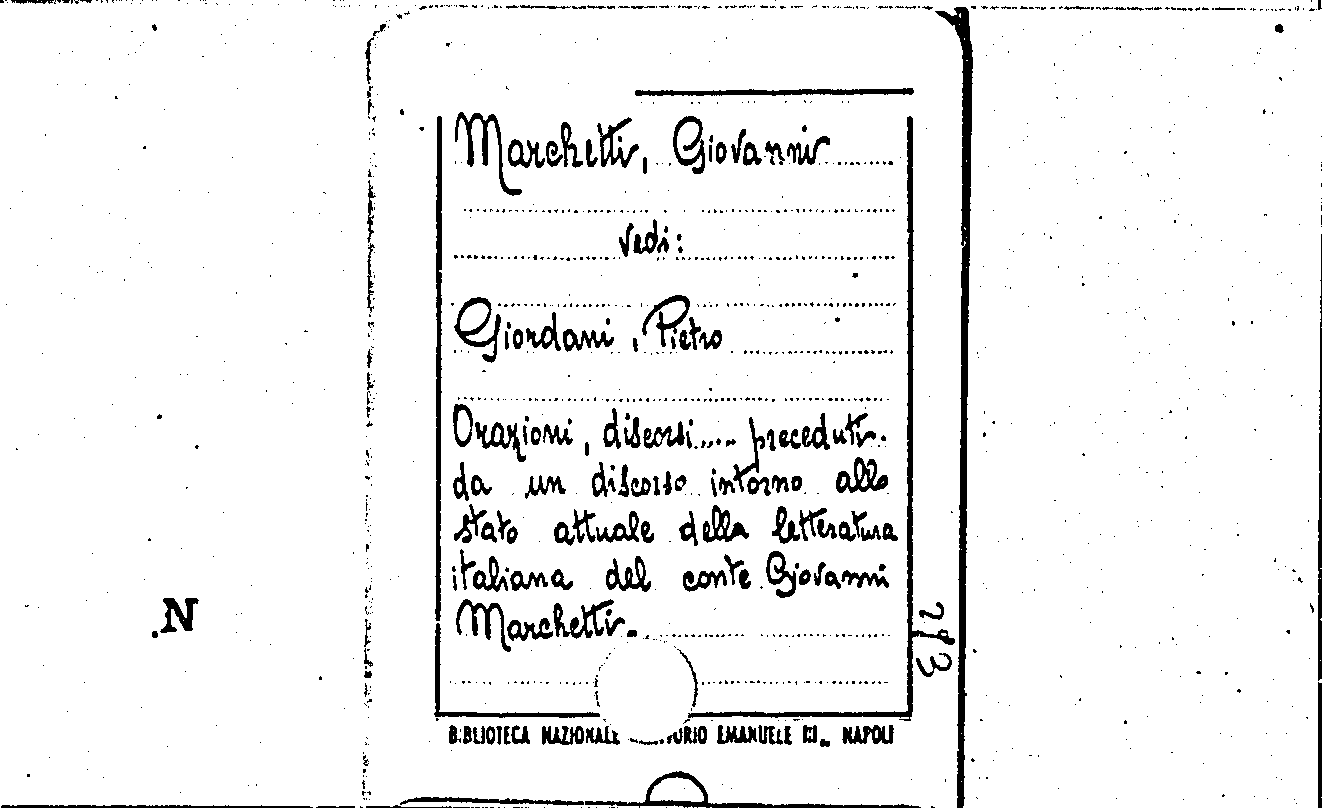 Marchetti, Giovanni
vedi:
Giordani, Pietro
Orazioni, discorsi..... preceduti
da un discorso intorno allo
stato attuale della letteratura
italiana del conte Giovanni
Marchetti.
N
BIBLIOTECA NAZIONALE EMANUELE III„ NAPOLI